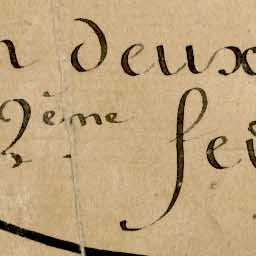 n deux
2ème fei